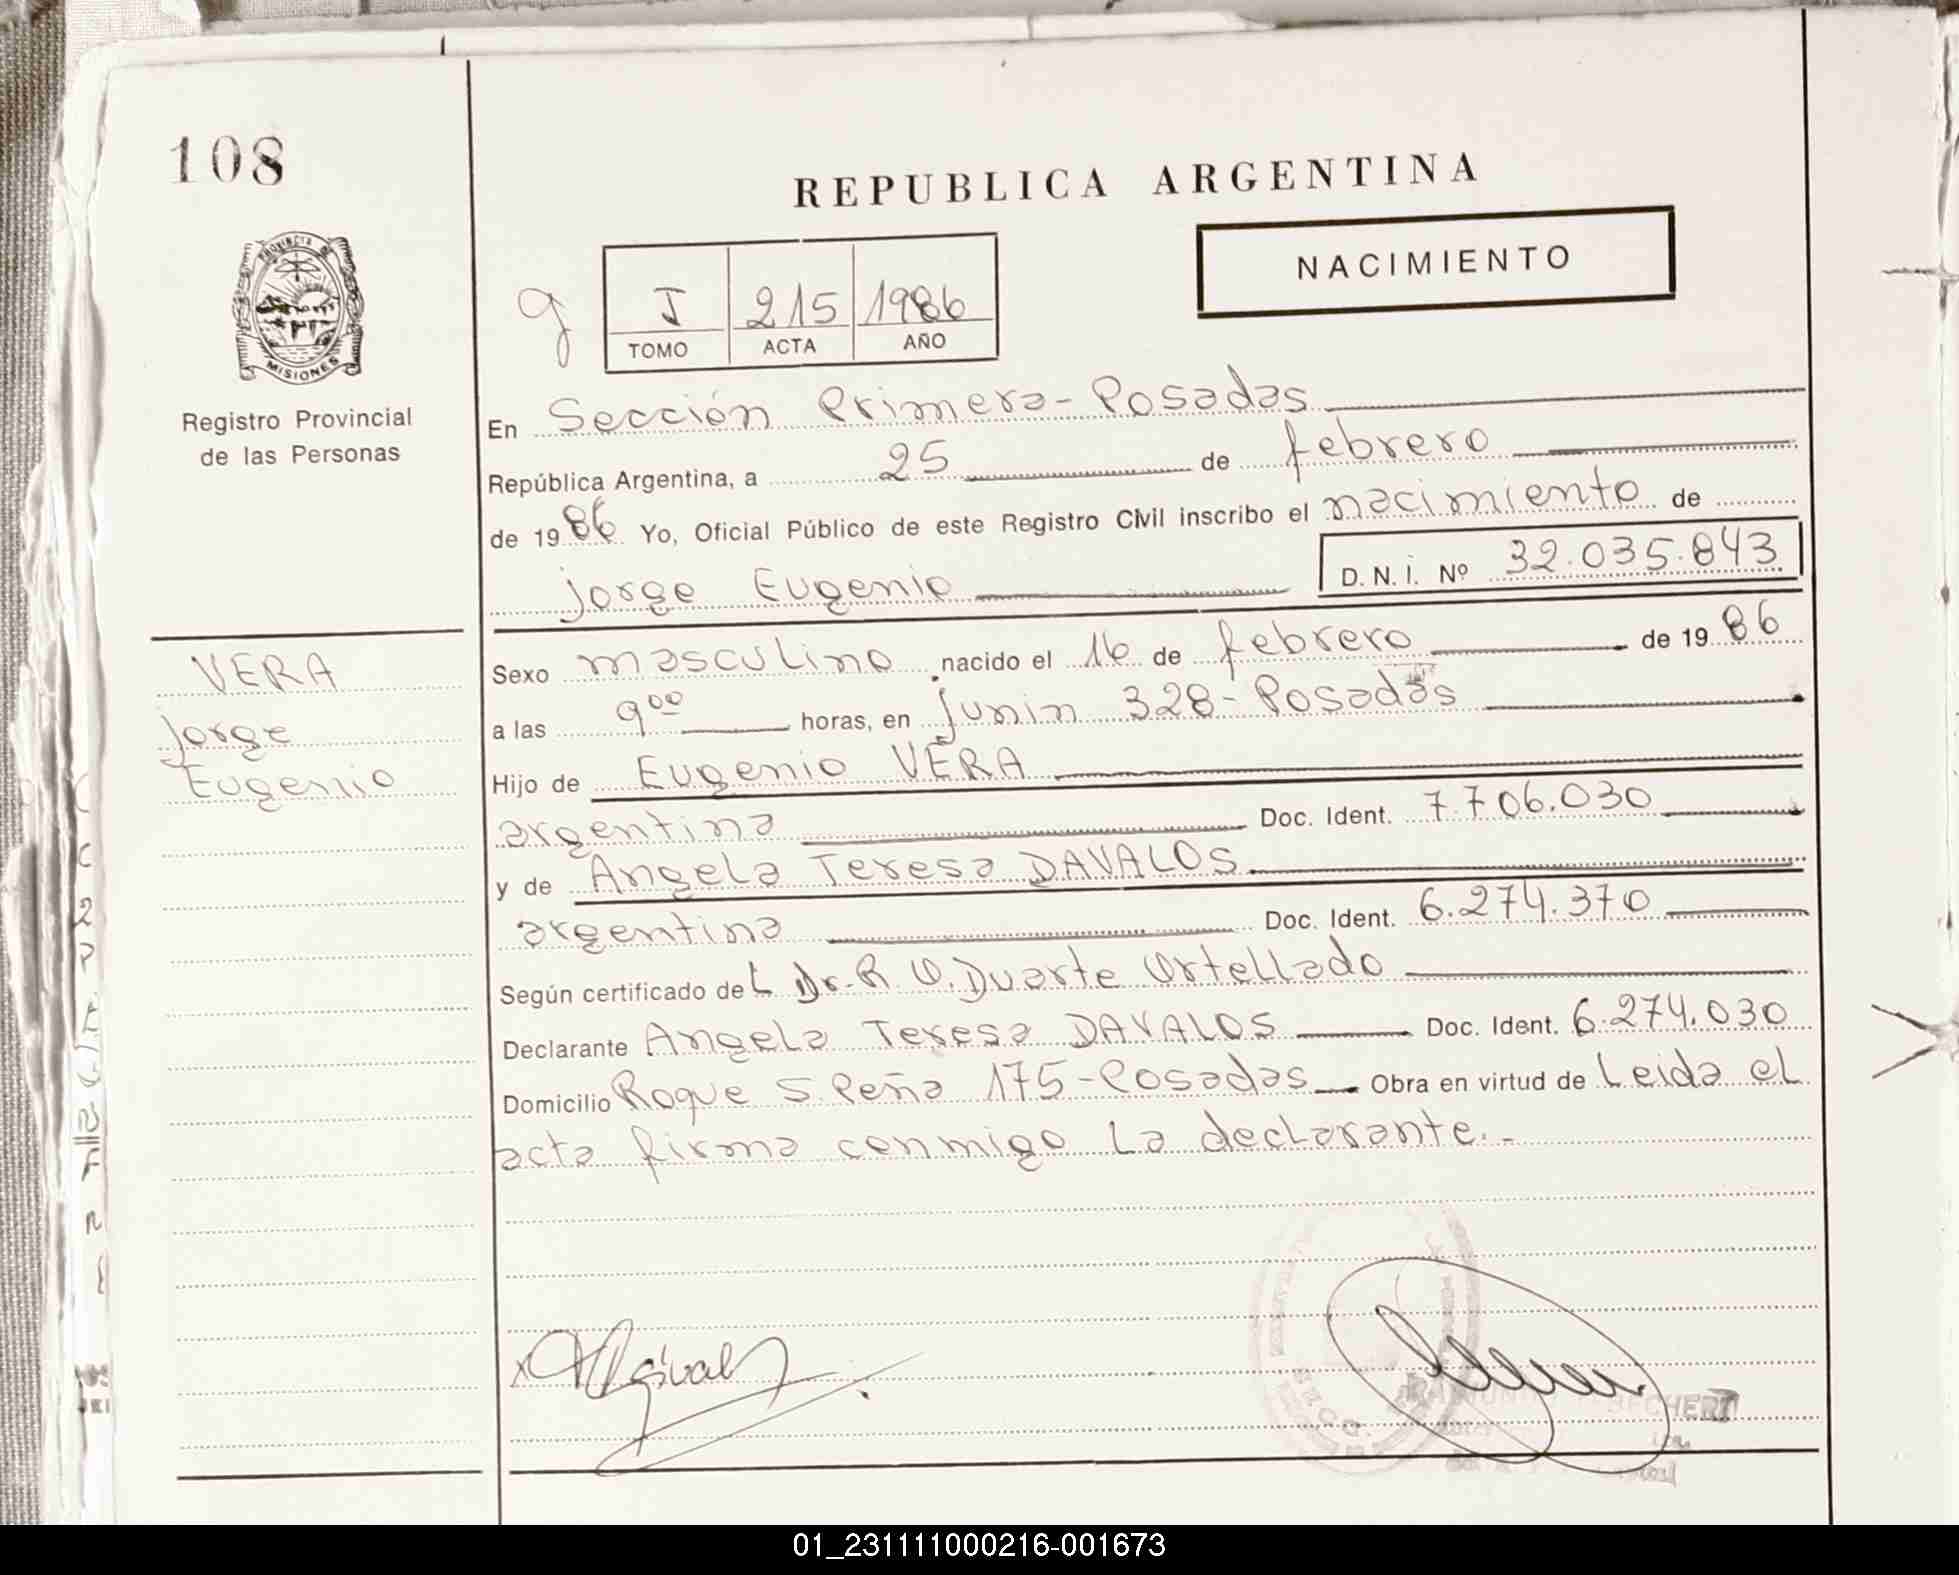 108
REPUBLICA ARGENTINA
NACIMIENTO
PROVINCIA DE
MISIONES
Registro Provincial
de las Personas
g
I 215 1986
TOMO ACTA AÑO
En Sección Primera - Posadas
República Argentina, a 25 de febrero
de 1986 Yo, Oficial Público de este Registro Civil inscribo el nacimiento de
Jorge Eugenio D. N. I. Nº 32.035.843
VERA
Jorge
Eugenio
Sexo masculino nacido el 16 de febrero de 1986
a las 9 00 horas, en Junin 328 - Posadas
Hijo de Eugenio VERA
argentina Doc. Ident. 7.706.030
y de Angela Teresa DAVALOS
argentina Doc. Ident. 6.274.370
Según certificado del Dr. R. O. Duarte Ortellado
Declarante Angela Teresa DAVALOS Doc. Ident. 6.274.030
Domicilio Roque S. Peña 175 - Posadas Obra en virtud de Leida el
acta firma conmigo la declarante. -
01_231111000216-001673